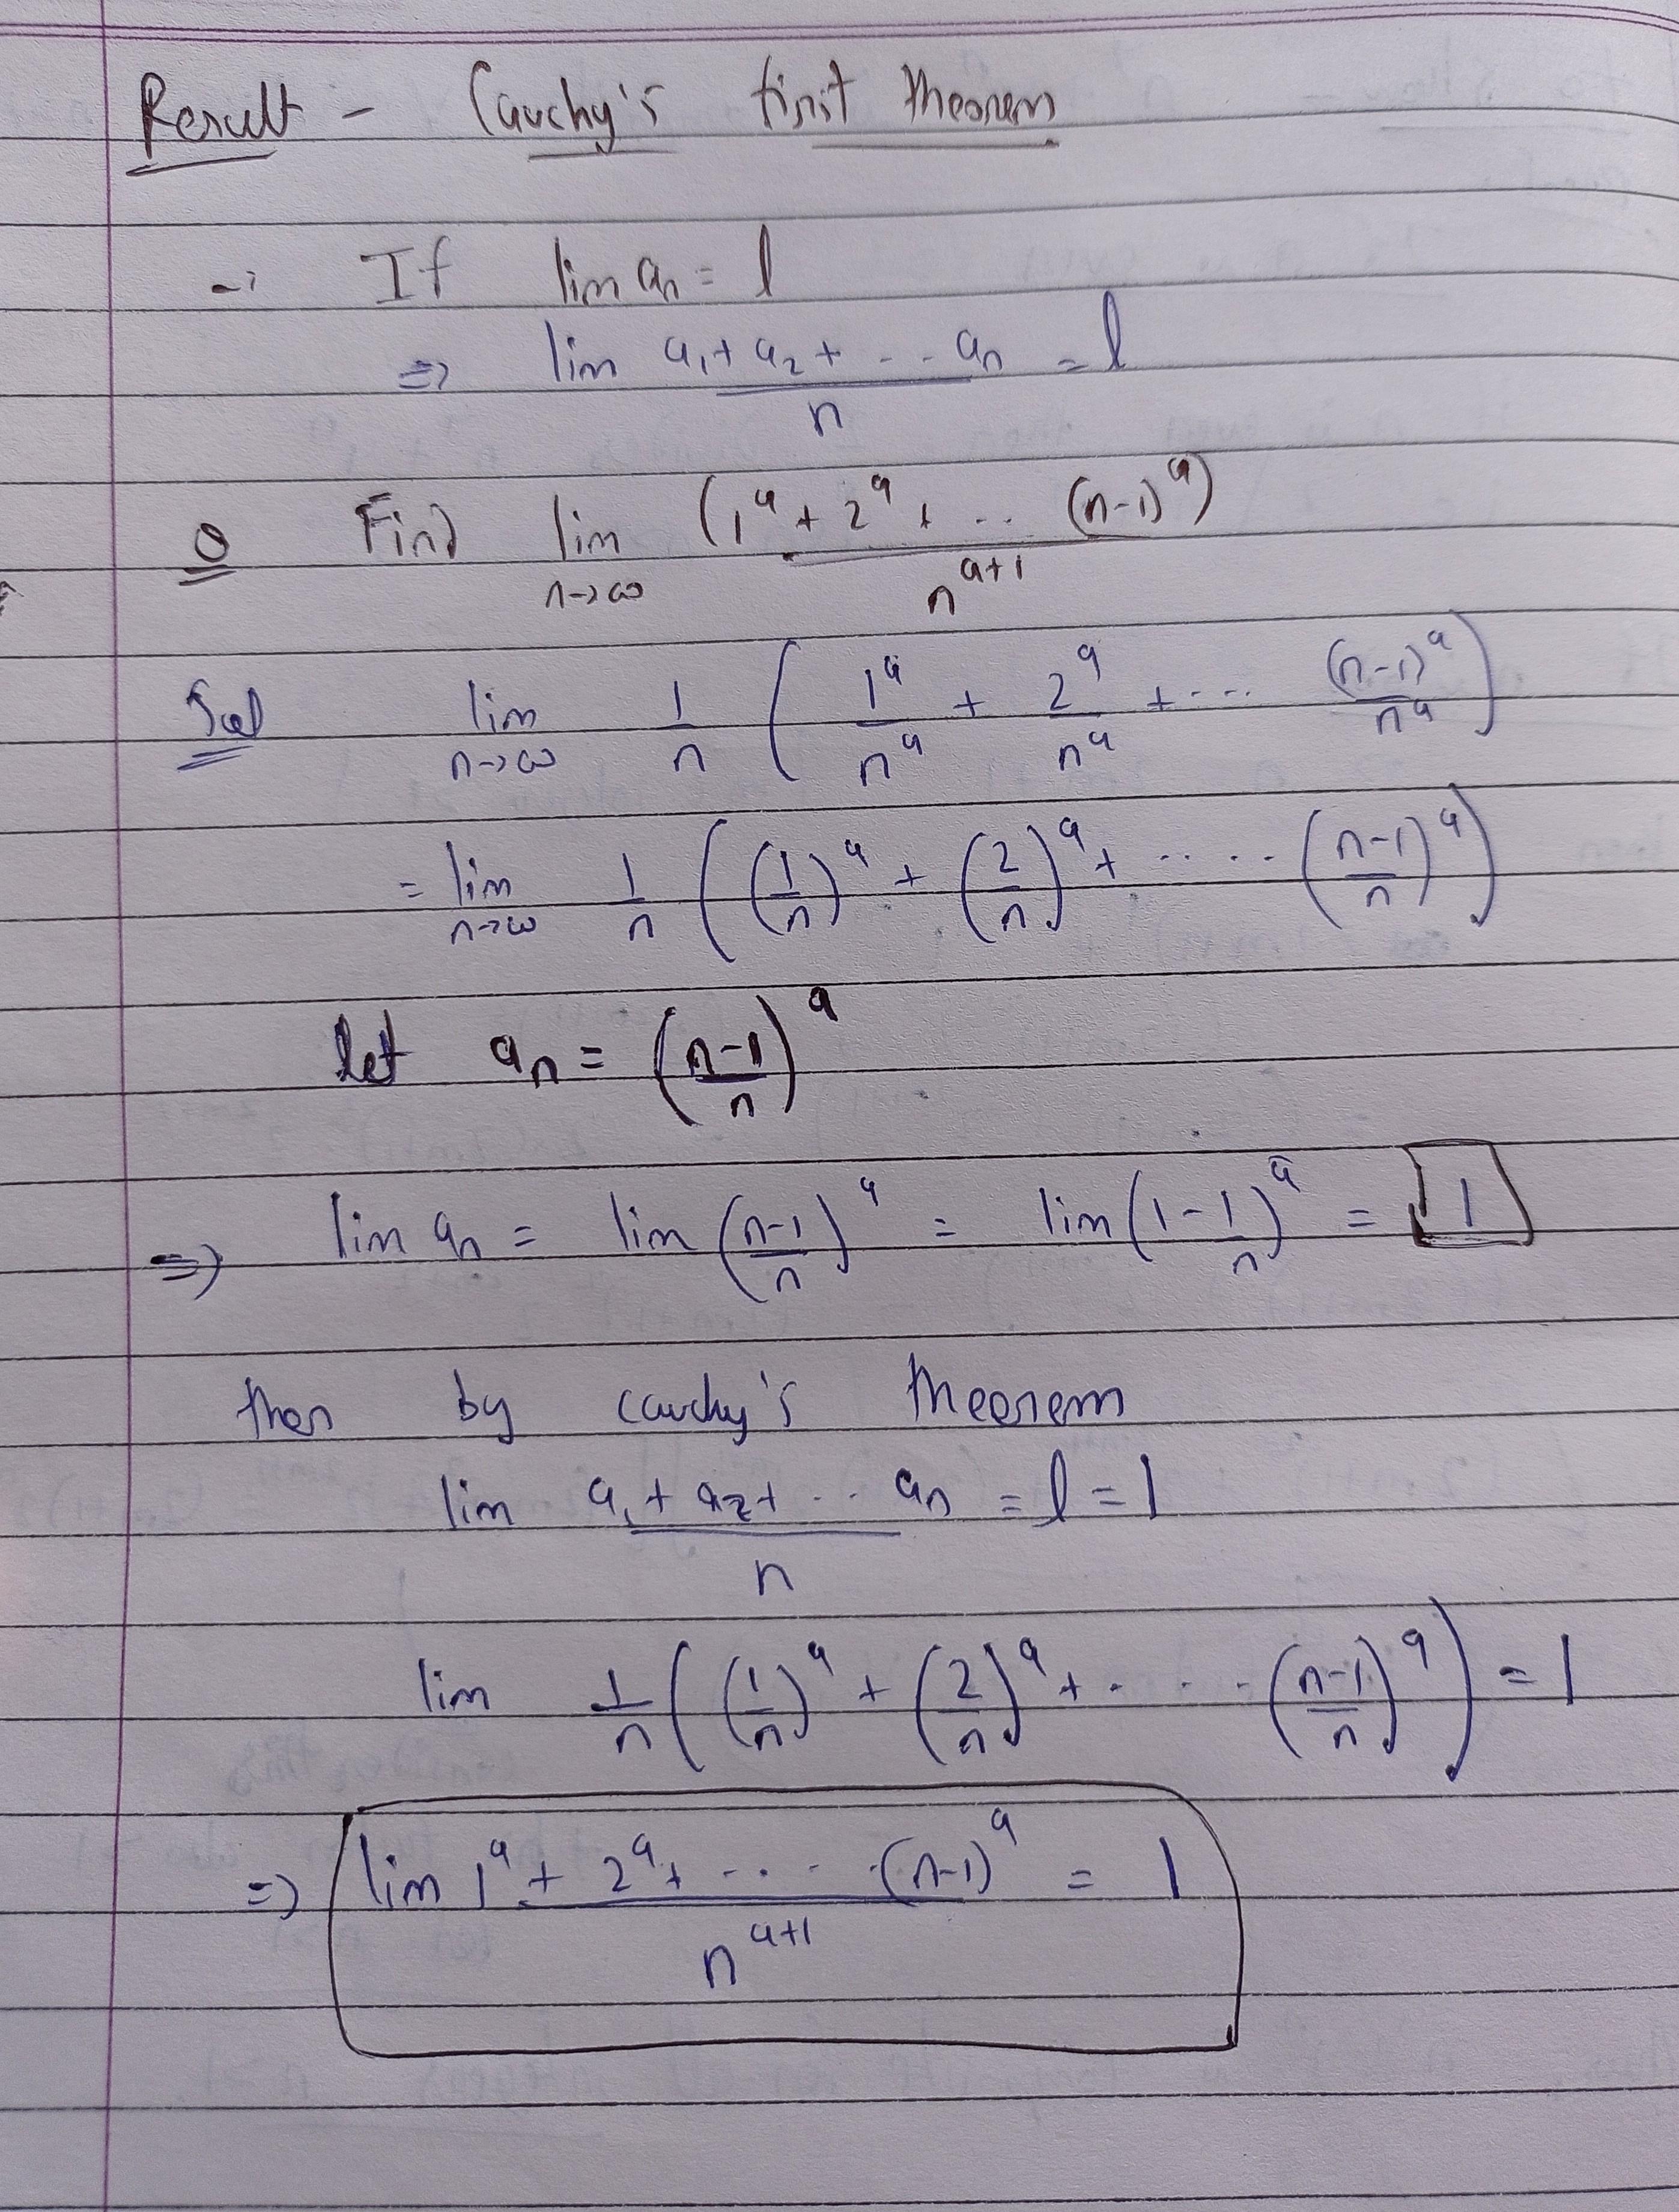 Result - Cauchy's first theorem
→ If lim aₙ = l
⇒ lim (a₁ + a₂ + - - aₙ)/n = l
Q Find lim_{n→∞} (1^a + 2^a + .. (n-1)^a)/n^{a+1}
Sol lim_{n→∞} 1/n (1^a/n^a + 2^a/n^a + ---- (n-1)^a/n^a)
= lim_{n→∞} 1/n ((1/n)^a + (2/n)^a + ..... ((n-1)/n)^a)
let aₙ = ((n-1)/n)^a
⇒ lim aₙ = lim ((n-1)/n)^a = lim (1 - 1/n)^a = 1
then by cauchy's theorem
lim (a₁ + a₂ + .. aₙ)/n = l = 1
lim 1/n ((1/n)^a + (2/n)^a + .... ((n-1)/n)^a) = 1
⇒ lim (1^a + 2^a + ..... (n-1)^a)/n^{a+1} = 1